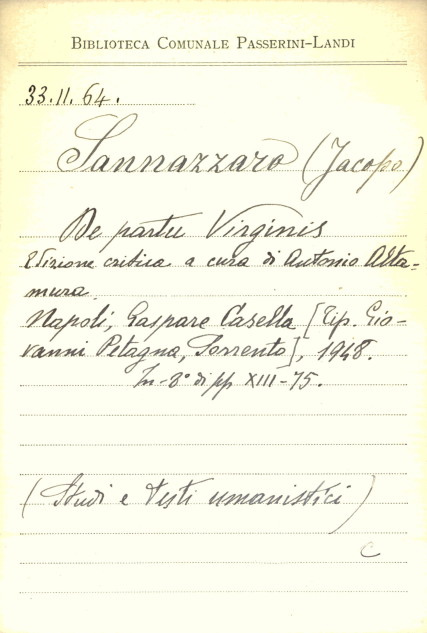 BIBLIOTECA COMUNALE PASSERINI-LANDI
33.II.64.
Sannazzaro (Jacopo)
De partu Virginis
Edizione critica a cura di Antonio Alta-
mura.
Napoli, Gaspare Casella [Tip. Gio-
vanni Petagna, Sorrento], 1948.
In-8° di pp XIII-75.
(Studi e testi umanistici)
C